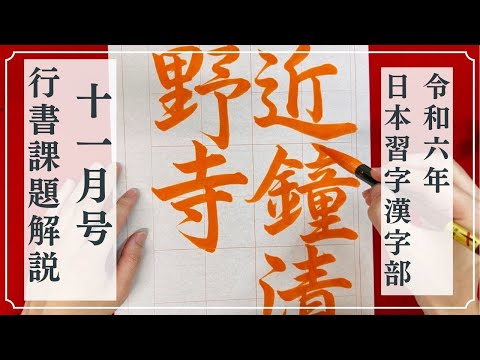 令和六年
日本習字漢字部
近鐘清
野寺
十一月号
行書課題解説